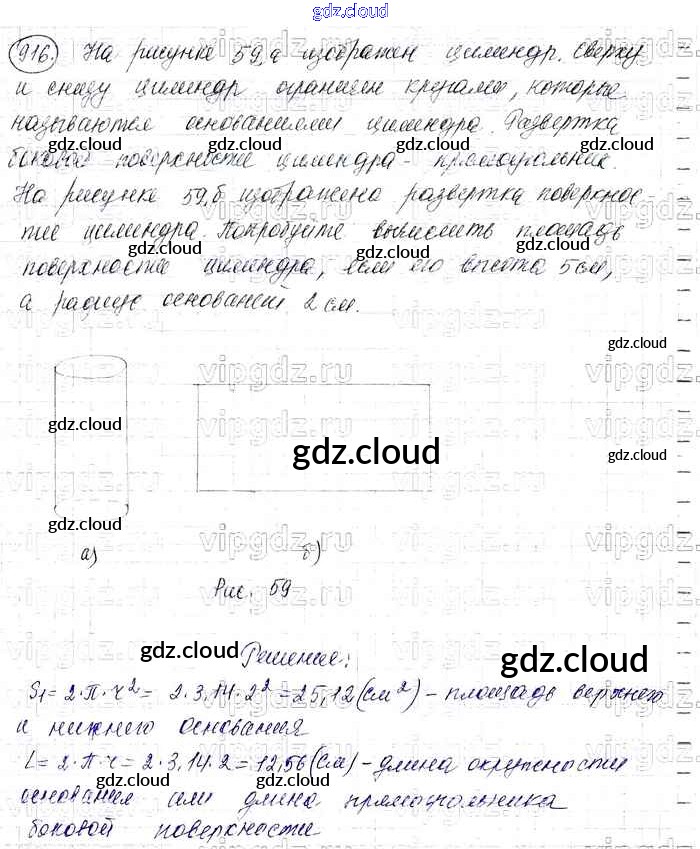 gdz.cloud
916. На рисунке 59,а изображен цилиндр. Сверху
и снизу цилиндр ограничен кругами, которые
называются основаниями цилиндра. Развертка
боковой поверхности цилиндра - прямоугольник.
На рисунке 59,б изображена развертка поверхнос-
ти цилиндра. Попробуйте вычислить площадь
поверхности цилиндра, если его высота 5 см,
а радиус оснований 2 см.
gdz.cloud
gdz.cloud
gdz.cloud
gdz.cloud
а) б)
Рис. 59
gdz.cloud Решение:
S₁ = 2·π·r² = 2·3,14·2² = 25,12 (см²) - площадь верхнего
и нижнего основания
L = 2·π·r = 2·3,14·2 = 12,56 (см) - длина окружности
основания или длина прямоугольника
боковой поверхности